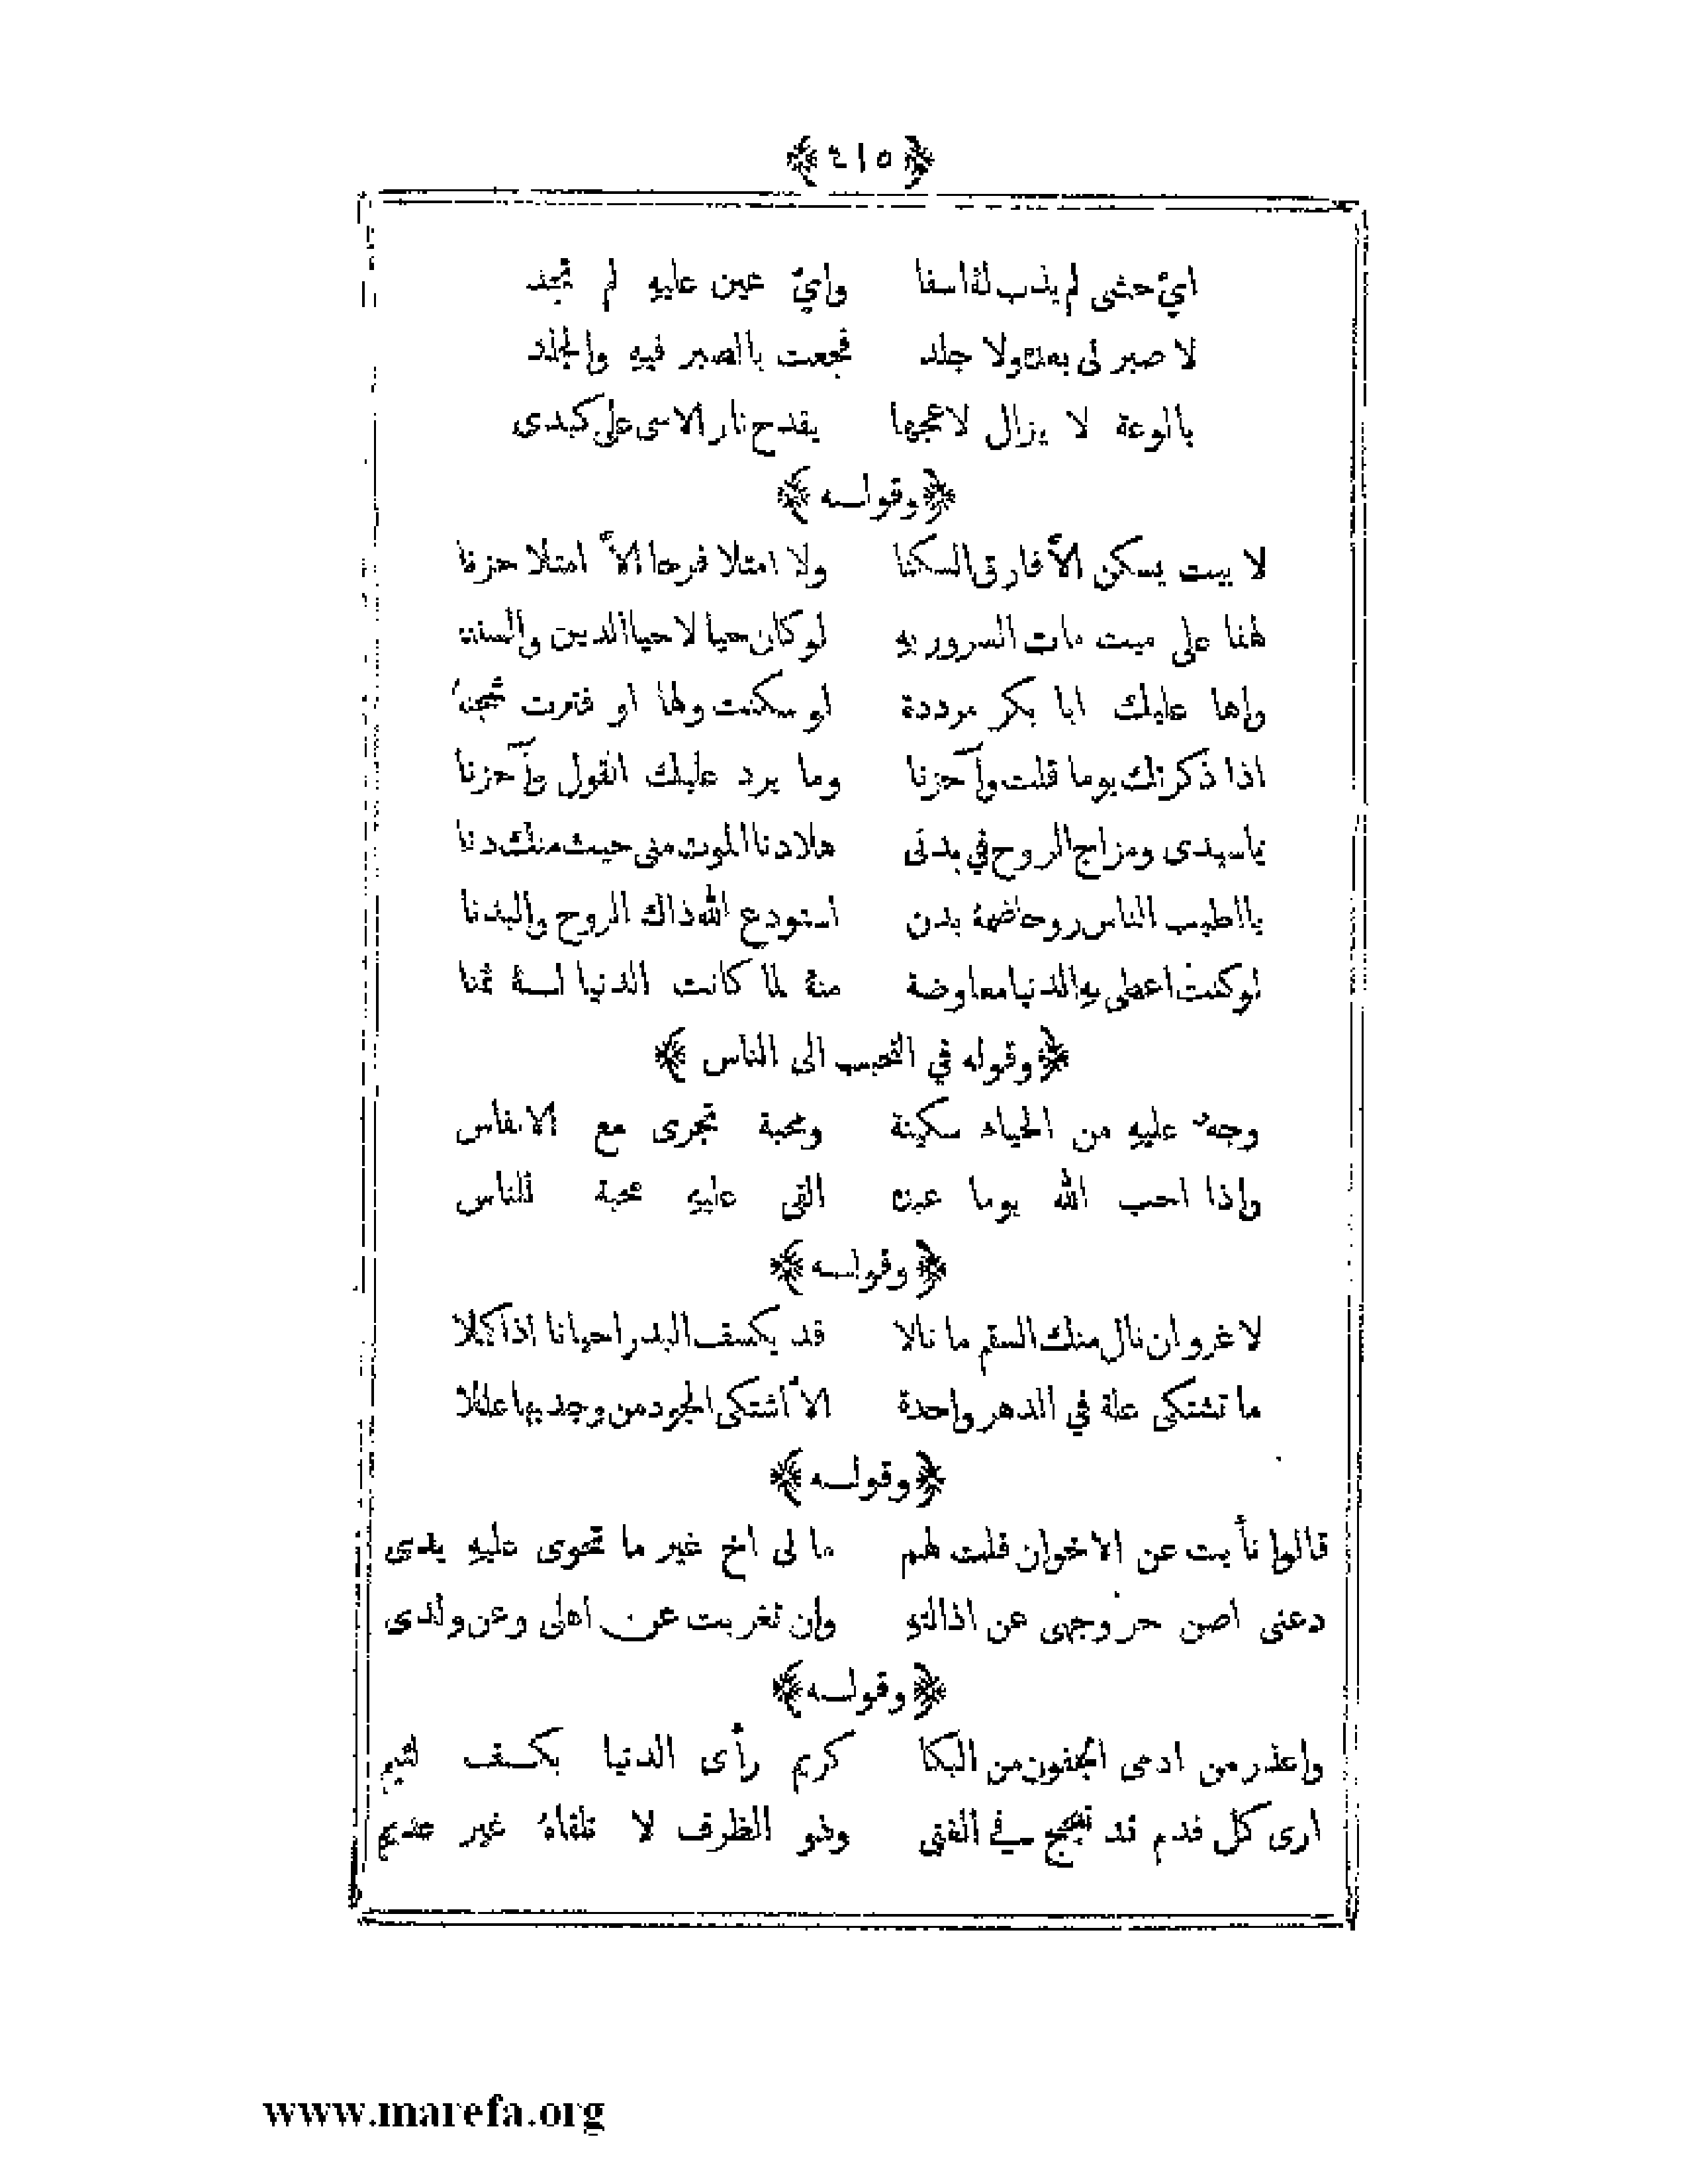 ﴿٤١٥﴾
ايّ حشى لم يذب لهُ اسفا وايّ عين عليهِ لم تجد
لا صبر لى بعدهُ ولا جلد فجعت بالصبر فيهِ والجلد
يالوعة لا يزال لاعجها يقدح نار الاسى على كبدى
﴿وقولـه﴾
لا بيت يسكن الاَّ فارق السكنا ولا امتلا فرحا الاَّ امتلا حزنا
لهفا على ميت مات السرور بهِ لو كان حيا لاحيا الدين والسننا
واها عليك ابا بكر مرددة لو سكنت ولها او فترت شجنا
اذا ذكرتك يوما قلت وآحزنا وما يرد عليك القول وآحزنا
ياسيدى ومزاج الروح في بدنى هلا دنا الموت منى حيث منك دنا
يااطيب الناس روحا ضمهُ بدن استودع الله ذاك الروح والبدنا
لو كنت اعطى بهِ الدنيا معاوضة منهُ لما كانت الدنيا لـهُ ثمنا
﴿وقوله في التحبب الى الناس﴾
وجهٌ عليهِ من الحياء سكينة ومحبة تجرى مع الانفاس
واذا احب الله يوما عبدهُ القى عليهِ محبة للناس
﴿وقولـه﴾
لا غرو ان نال منك السقم ما نالا قد يكسف البدر احيانا اذا كملا
ما تشتكى علة في الدهر واحدة الاَّ اشتكى الجود من وجد بها عللا
﴿وقولـه﴾
قالوا نأَيت عن الاخوان قلت لهم ما لى اخ غير ما تحوى عليهِ يدى
دعنى اصن حر وجهى عن اذالتهِ وان تغربت عن اهلى وعن ولدى
﴿وقولـه﴾
واعذر من ادمى الجفون من البكا كريم رأَى الدنيا بكـف لئيم
ارى كل فدم قد تبجح في الغنى وذو الظرف لا تلقاهُ غير عديم
www.marefa.org